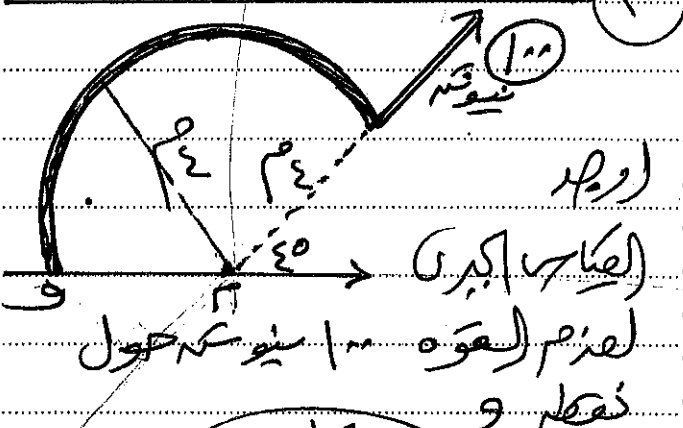 ١
١٠٠
نيوتن
٤م
٤م
٤٥
م
و
اوجد
القياس الجبرى
لعزم القوه ١٠٠ نيوتن حول
نقطه و